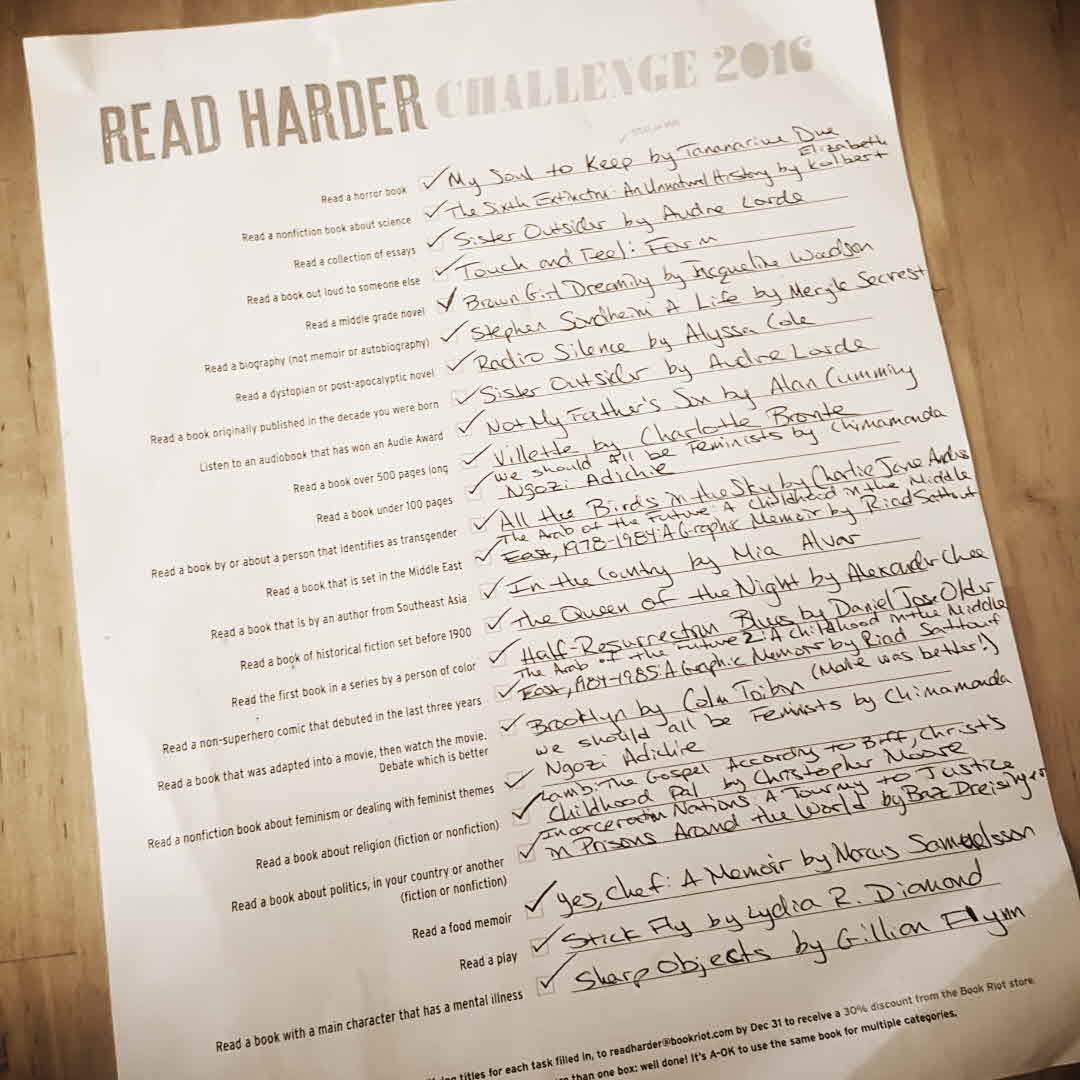 READ HARDER CHALLENGE 2016
Read a horror book ✓ My Soul to Keep by Tananarive Due
Read a nonfiction book about science ✓ The Sixth Extinction: An Unnatural History by Elizabeth Kolbert
Read a collection of essays ✓ Sister Outsider by Audre Lorde
Read a book out loud to someone else ✓ Touch and Feel: Farm
Read a middle grade novel ✓ Brown Girl Dreaming by Jacqueline Woodson
Read a biography (not memoir or autobiography) ✓ Stephen Sondheim A Life by Meryle Secrest
Read a dystopian or post-apocalyptic novel ✓ Radio Silence by Alyssa Cole
Read a book originally published in the decade you were born ✓ Sister Outsider by Audre Lorde
Listen to an audiobook that has won an Audie Award ✓ Not My Father's Son by Alan Cumming
Read a book over 500 pages long ✓ Villette by Charlotte Bronte
Read a book under 100 pages ✓ We should All be Feminists by Chimamanda
Ngozi Adichie
Read a book by or about a person that identifies as transgender ✓ All the Birds in the Sky by Charlie Jane Anders
Read a book that is set in the Middle East ✓ The Arab of the Future: A Childhood in the Middle
East, 1978-1984: A Graphic Memoir by Riad Sattouf
Read a book that is by an author from Southeast Asia ✓ In the Country by Mia Alvar
Read a book of historical fiction set before 1900 ✓ The Queen of the Night by Alexander Chee
Read the first book in a series by a person of color ✓ Half-Resurrection Blues by Daniel José Older
Read a non-superhero comic that debuted in the last three years ✓ The Arab of the Future 2: A Childhood in the Middle
East, 1984-1985: A Graphic Memoir by Riad Sattouf
Read a book that was adapted into a movie, then watch the movie. ✓ Brooklyn by Colm Toibin (Movie was better!)
Debate which is better
Read a nonfiction book about feminism or dealing with feminist themes ✓ We should all be Feminists by Chimamanda
Ngozi Adichie
Read a book about religion (fiction or nonfiction) ✓ Lamb: The Gospel According to Biff, Christ's
Childhood Pal by Christopher Moore
Read a book about politics, in your country or another ✓ Incarceration Nations: A Journey to Justice
(fiction or nonfiction) in Prisons Around the World by Baz Dreisinger
Read a food memoir ✓ Yes, Chef: A Memoir by Marcus Samuelsson
Read a play ✓ Stick Fly by Lydia R. Diamond
Read a book with a main character that has a mental illness ✓ Sharp Objects by Gillian Flynn
titles for each task filled in, to readharder@bookriot.com by Dec 31 to receive a 30% discount from the Book Riot store.
than one box: well done! It's A-OK to use the same book for multiple categories.